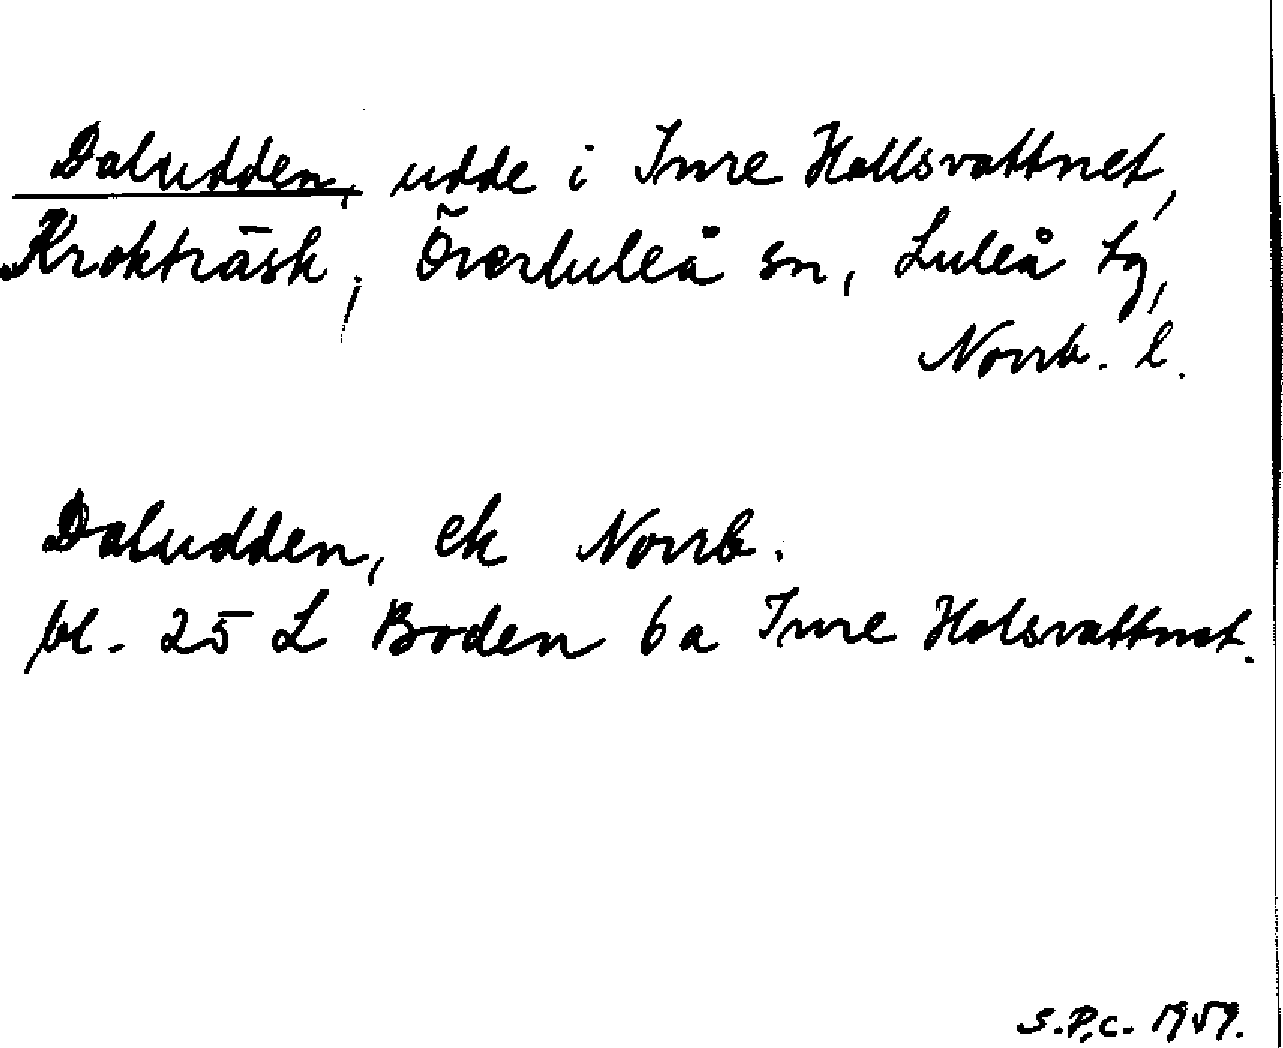 Daludden, udde i Inre Hallsvattnet,
Kroktråsk, Överluleå sn, Luleå tg,
Norrb. l.
Daludden, ek Norrb.
bl. 25 L Boden 6a Inre Holsvattnet.
S.P.C. 1959.